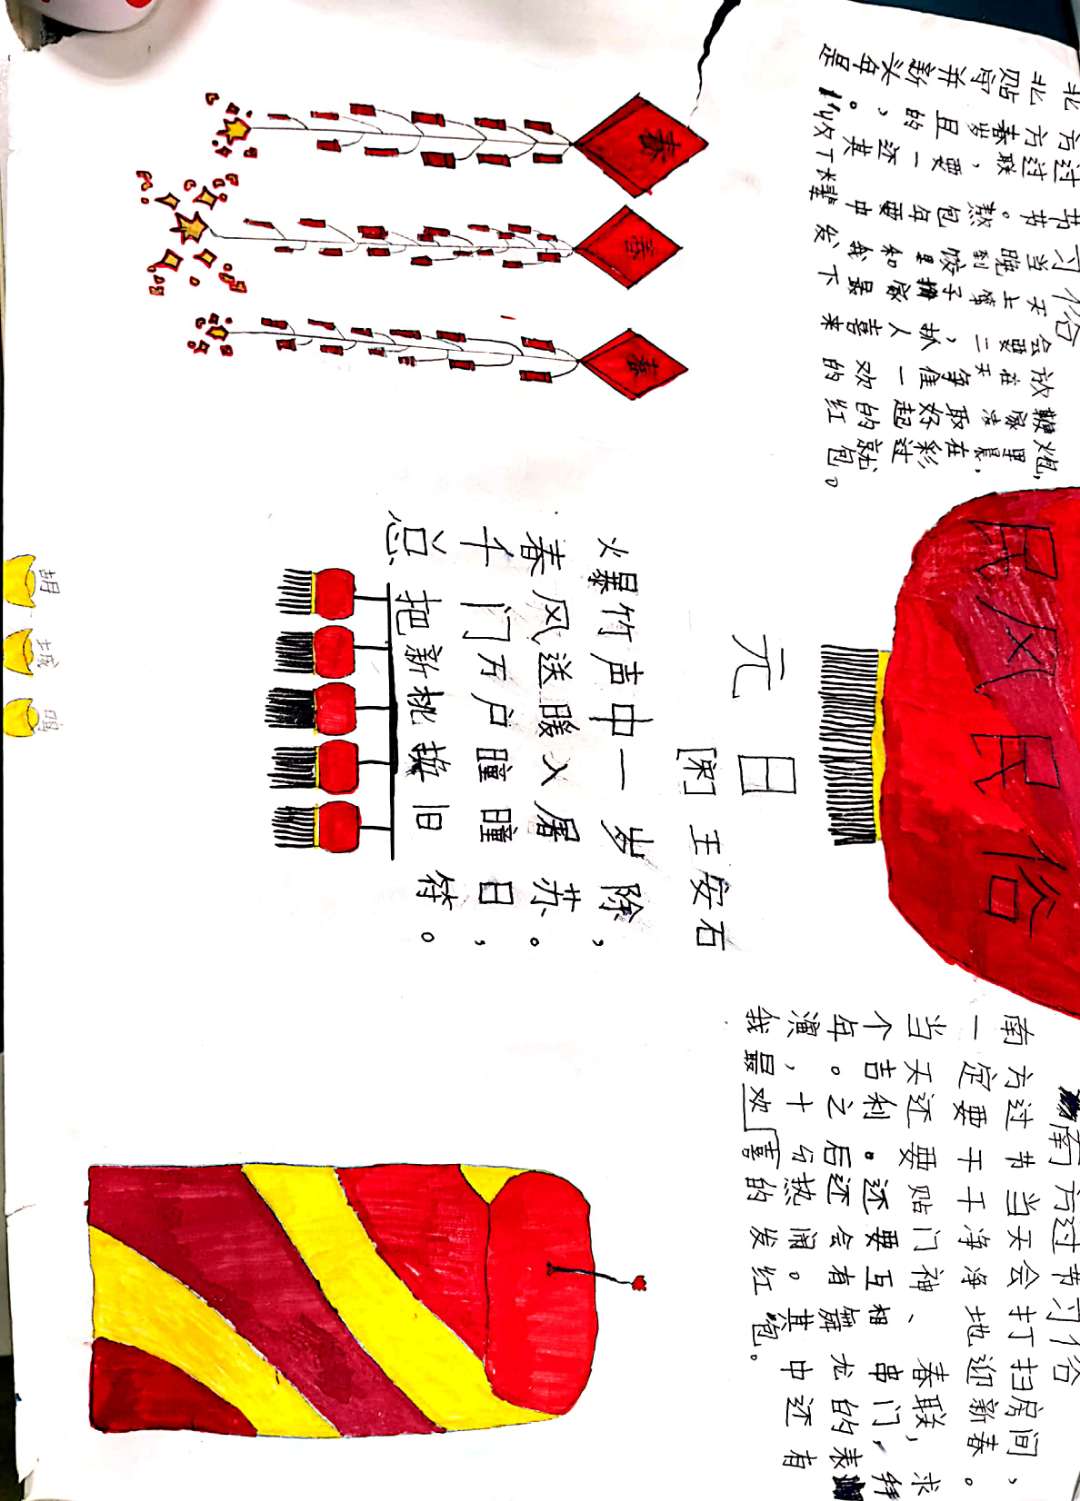 民风民俗
北方过节习俗
北方过节当天会放鞭炮，
贴春联。晚上要在家里
守岁，熬到第二天凌晨，
并且要包饺子，争取在
新的一年里抓住好彩
头、还要和家人一起过
年。其中我最喜欢的就
是收下长辈发下来的红包。
元日
王安石
爆竹声中一岁除，
春风送暖入屠苏。
千门万户瞳瞳日，
总把新桃换旧符。
南方过节习俗
南方过节当天会打扫房间，
一定要干干净净地迎新春。
当天还要贴门神、春联，求
个吉利。还要互相串门，拜
年。之后还会有舞龙的表
演，十分热闹。其中还有
我最喜欢的发红包。
春
春
春
胡
城